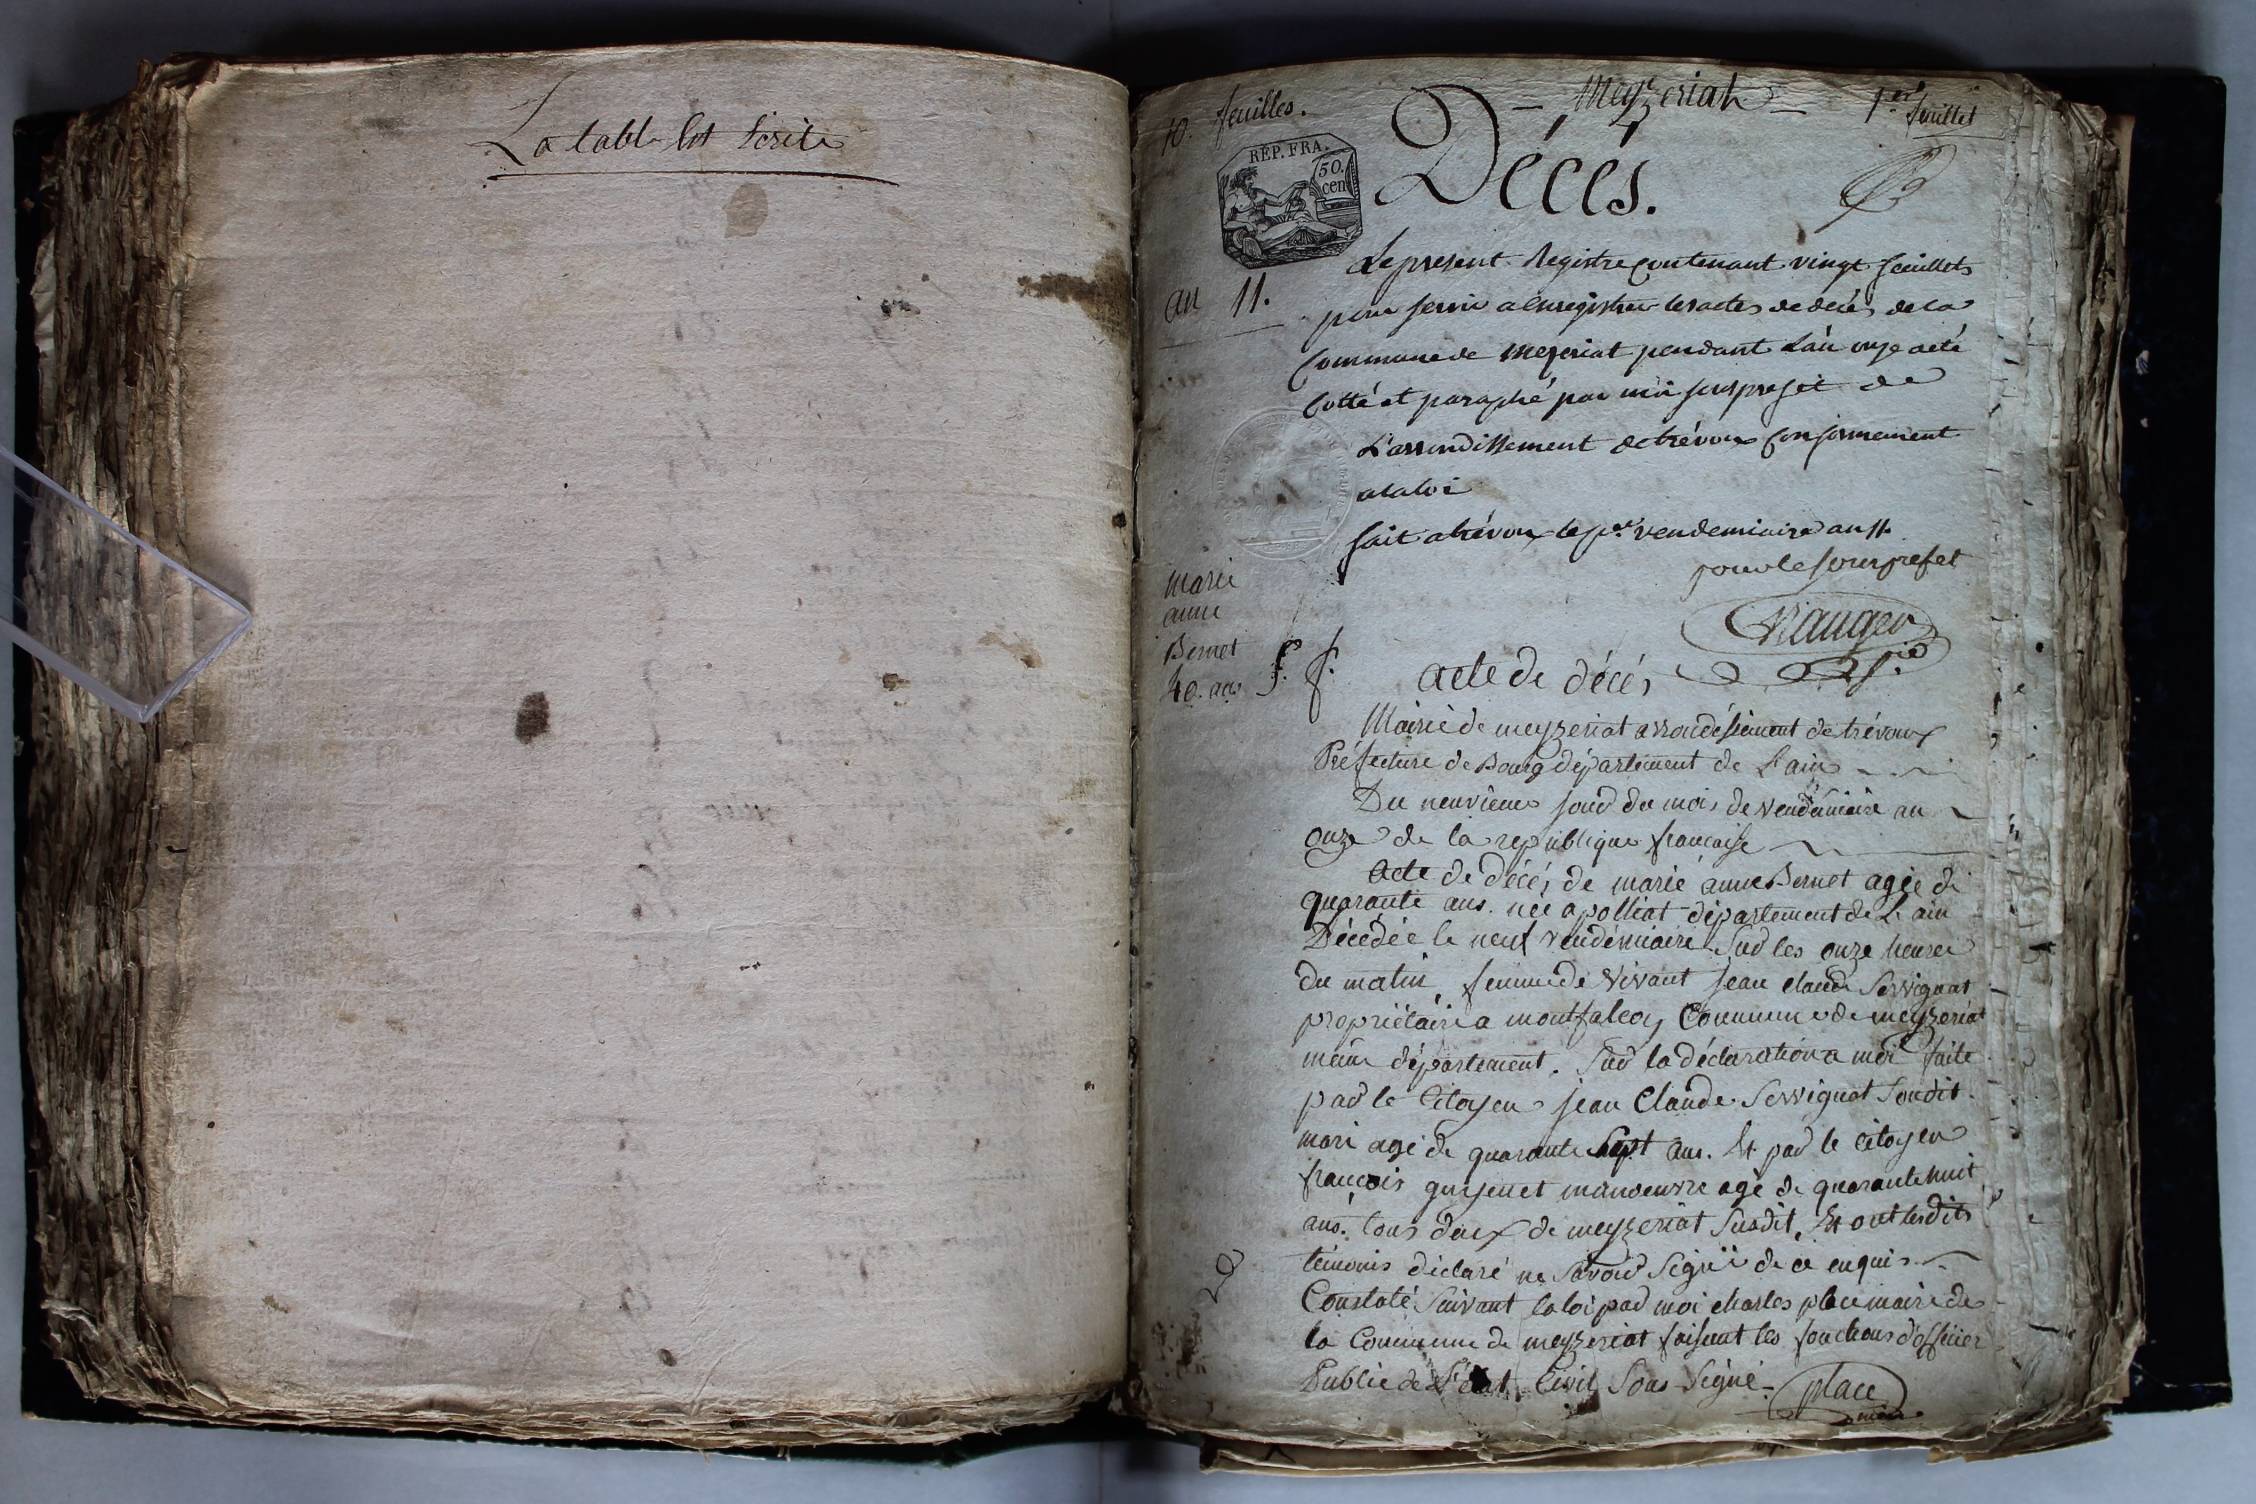 La table est Ecrite
10. feuilles.
— Meyzeriat —
1er feuillet
REP. FRA.
50.
cen
Décés.
an 11.
Le present Registre contenant vingt feuillets
pour servir a enregistrer les actes de décés de la
Commune de mezeriat pendant L'an onze a eté
Cotté et paraphé par moi souspréfet de
L'arrondissement de trévoux Conformement
a la loi
fait a trévoux le pr. vendemiaire an 11.
pour le sousprefet
Marie
anne
Bernet
40. ans
acte de décés
Mairie de meyzeriat arrondissement de trévoux
Préfecture de Bourg département de L'ain
Du neuvieme jour du mois de vendémiaire an
onze de la republique française
Acte de décés de marie anne Bernet agée de
quarante ans. née a polliat département de L'ain
Décédée le neuf vendémiaire sur les onze heures
du matin, femme de vivant jean claude Servignat
propriétaire a montfalcon Commune de meyzeriat
meme département. sur la déclaration a moi faite
par le Citoyen jean Claude Servignat Soudit
mari agé de quarante sept ans. Et par le citoyen
françois guyenet manoeuvre agé de quarante huit
ans. tous deux de meyzeriat susdit, Et ont lesdits
témoins déclaré ne savoir signer de ce enquis
Constaté Suivant la loi par moi charles place maire de
la Commune de meyzeriat faisant les fonctions d'officier
Public de L'état Civil Sous-Signé-
place
maire